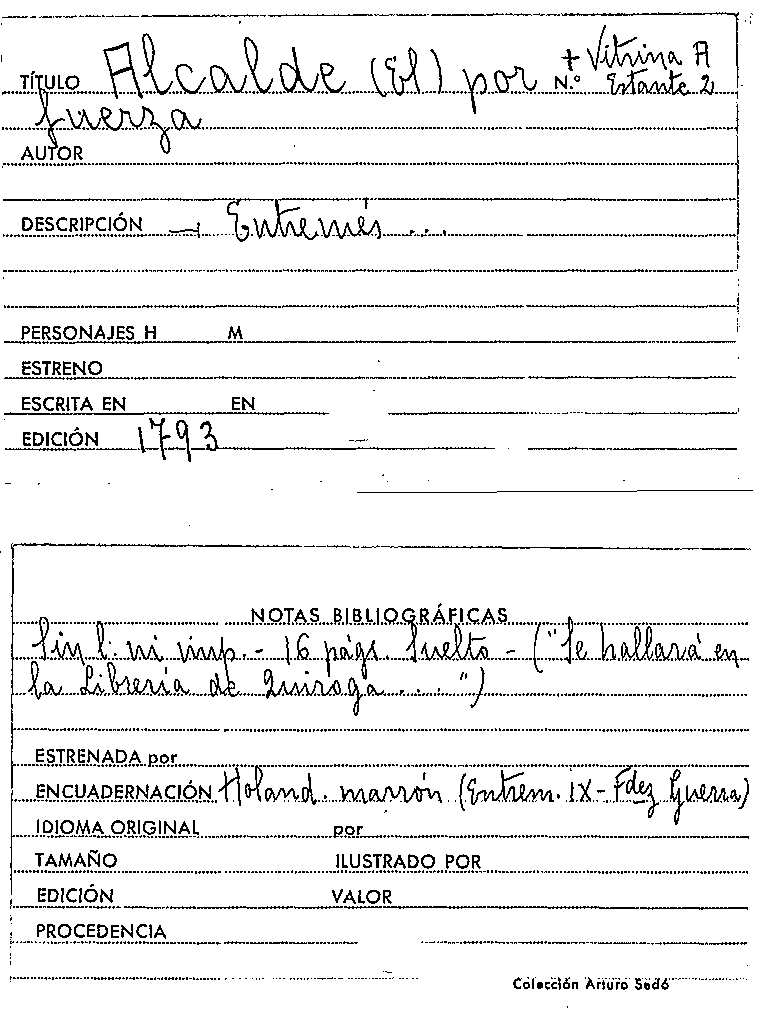 TÍTULO Alcalde (El) por + Vitrina A
N.º Estante 2
fuerza
AUTOR
DESCRIPCIÓN — Entremés ...
PERSONAJES H M
ESTRENO
ESCRITA EN EN
EDICIÓN 1793
NOTAS BIBLIOGRÁFICAS
Sin l. ni imp. - 16 págs. Suelto - ("Se hallará en
la Librería de Quiroga . . . .")
ESTRENADA por
ENCUADERNACIÓN Holand. marrón (Entrem. IX - Fdez Guerra)
IDIOMA ORIGINAL por
TAMAÑO ILUSTRADO POR
EDICIÓN VALOR
PROCEDENCIA
Colección Arturo Sedó